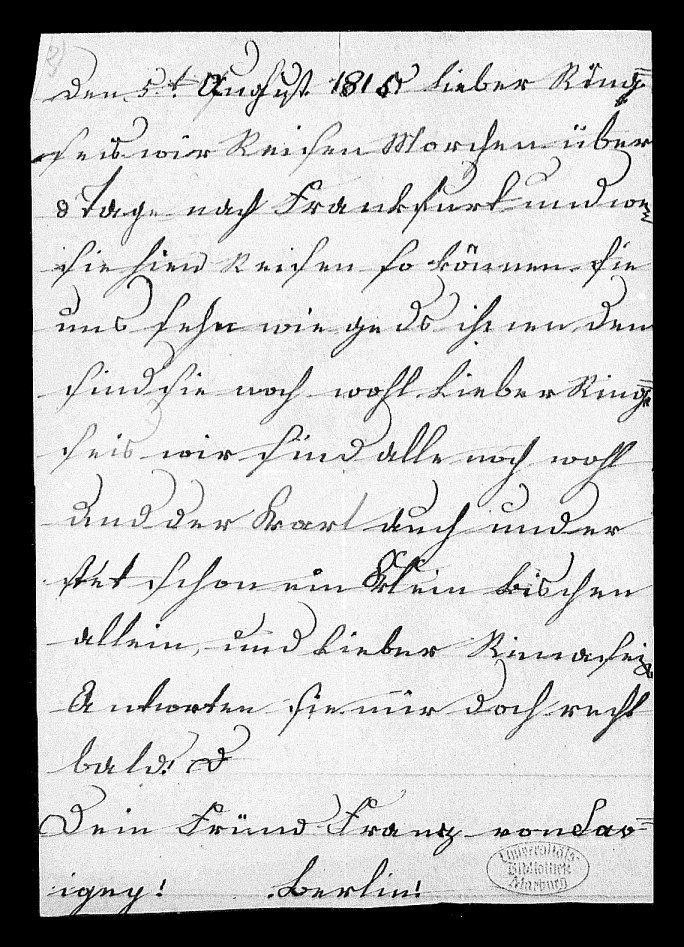 2)
Den 5.t August. 1815 Lieber Ring=
seis wir Reisen Morchen über
8 Tage nach Frankfurt und we=
sie hien Reisen so können sie
uns sehn wie geds ihnen den
sind sie noch wohl Lieber Ring=
seis wir sind alle noch wohl
und der Karl auch und er
stet schon ein Klein bischen
allein, und Lieber Rinaseiz
Antworten sie mir doch recht
bald!
Dein Fründ Franz von Sav=
igny! Berlin!
Universitäts-
Bibliothek
Marburg